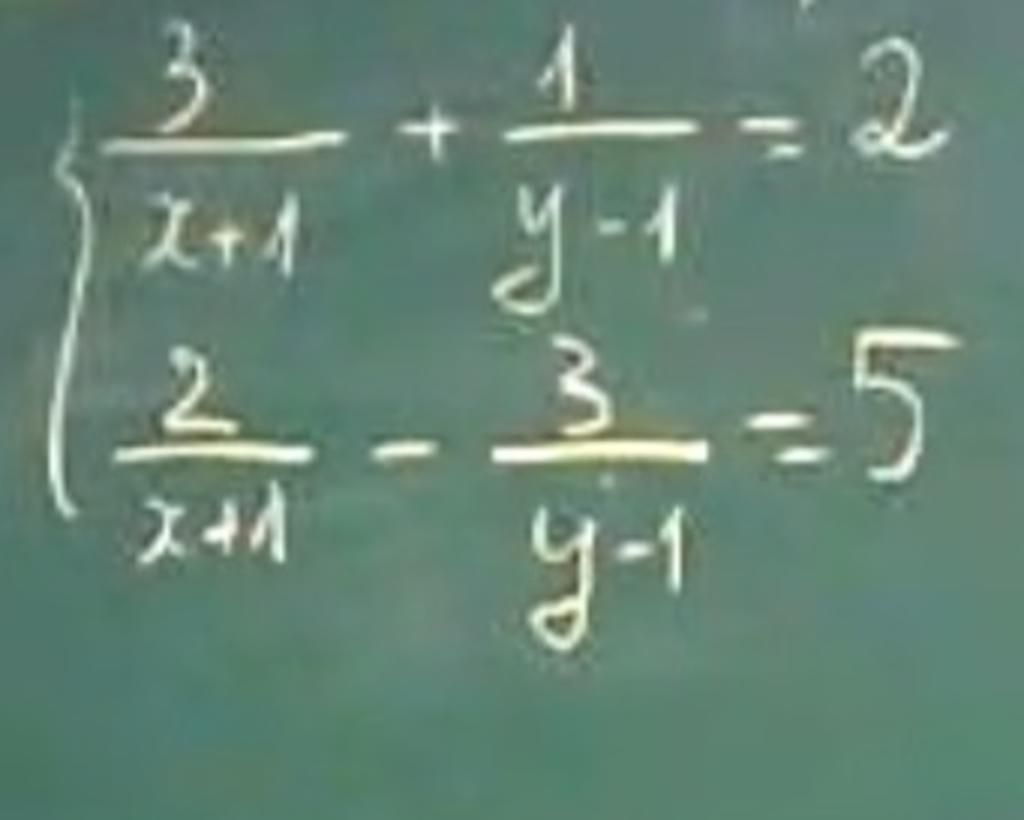 3/(x+1) + 1/(y-1) = 2
2/(x+1) - 3/(y-1) = 5